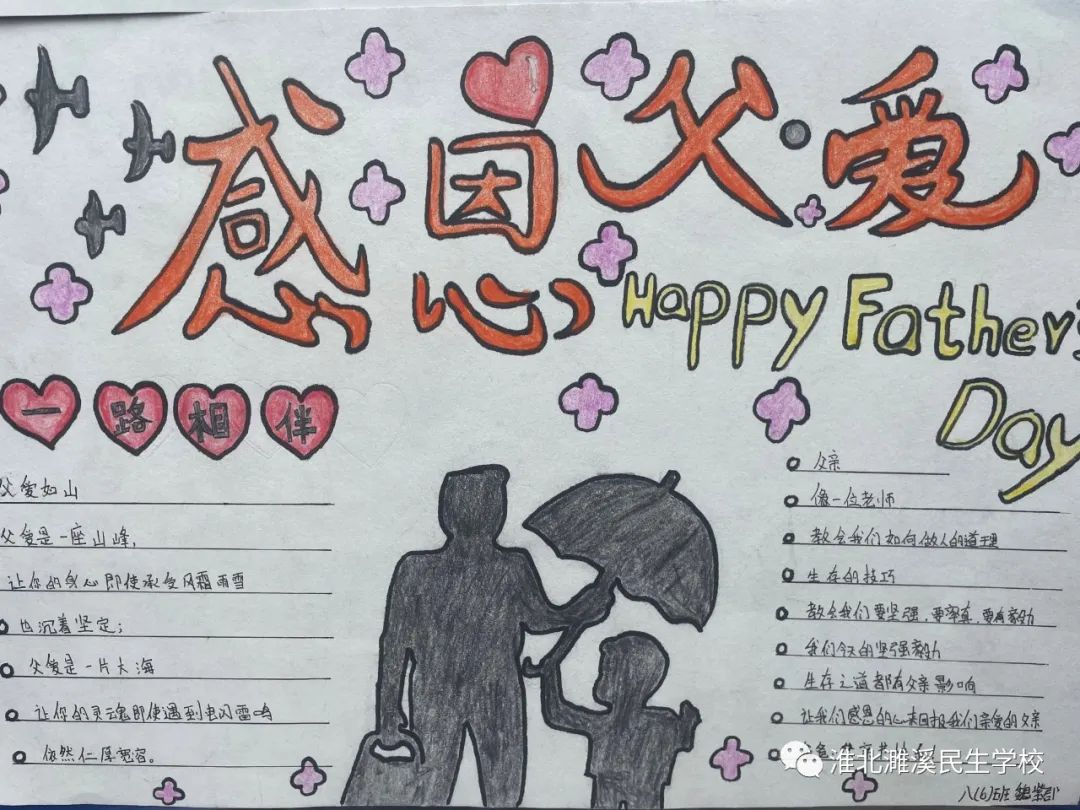 感恩父·爱
Happy Father's
Day
一路相伴
父爱如山
父爱是一座山峰,
让你的身心即使承受风霜雨雪
也沉着坚定;
父爱是一片大海
让你的灵魂即使遇到电闪雷鸣
依然仁厚宽容。
父亲
像一位老师
教会我们如何做人的道理
生存的技巧
教会我们要坚强,要率真,要有毅力
我们今天的坚强毅力
生存之道都有父亲影响
让我们感恩的心来回报我们亲爱的父亲
淮北濉溪民生学校
八(6)班